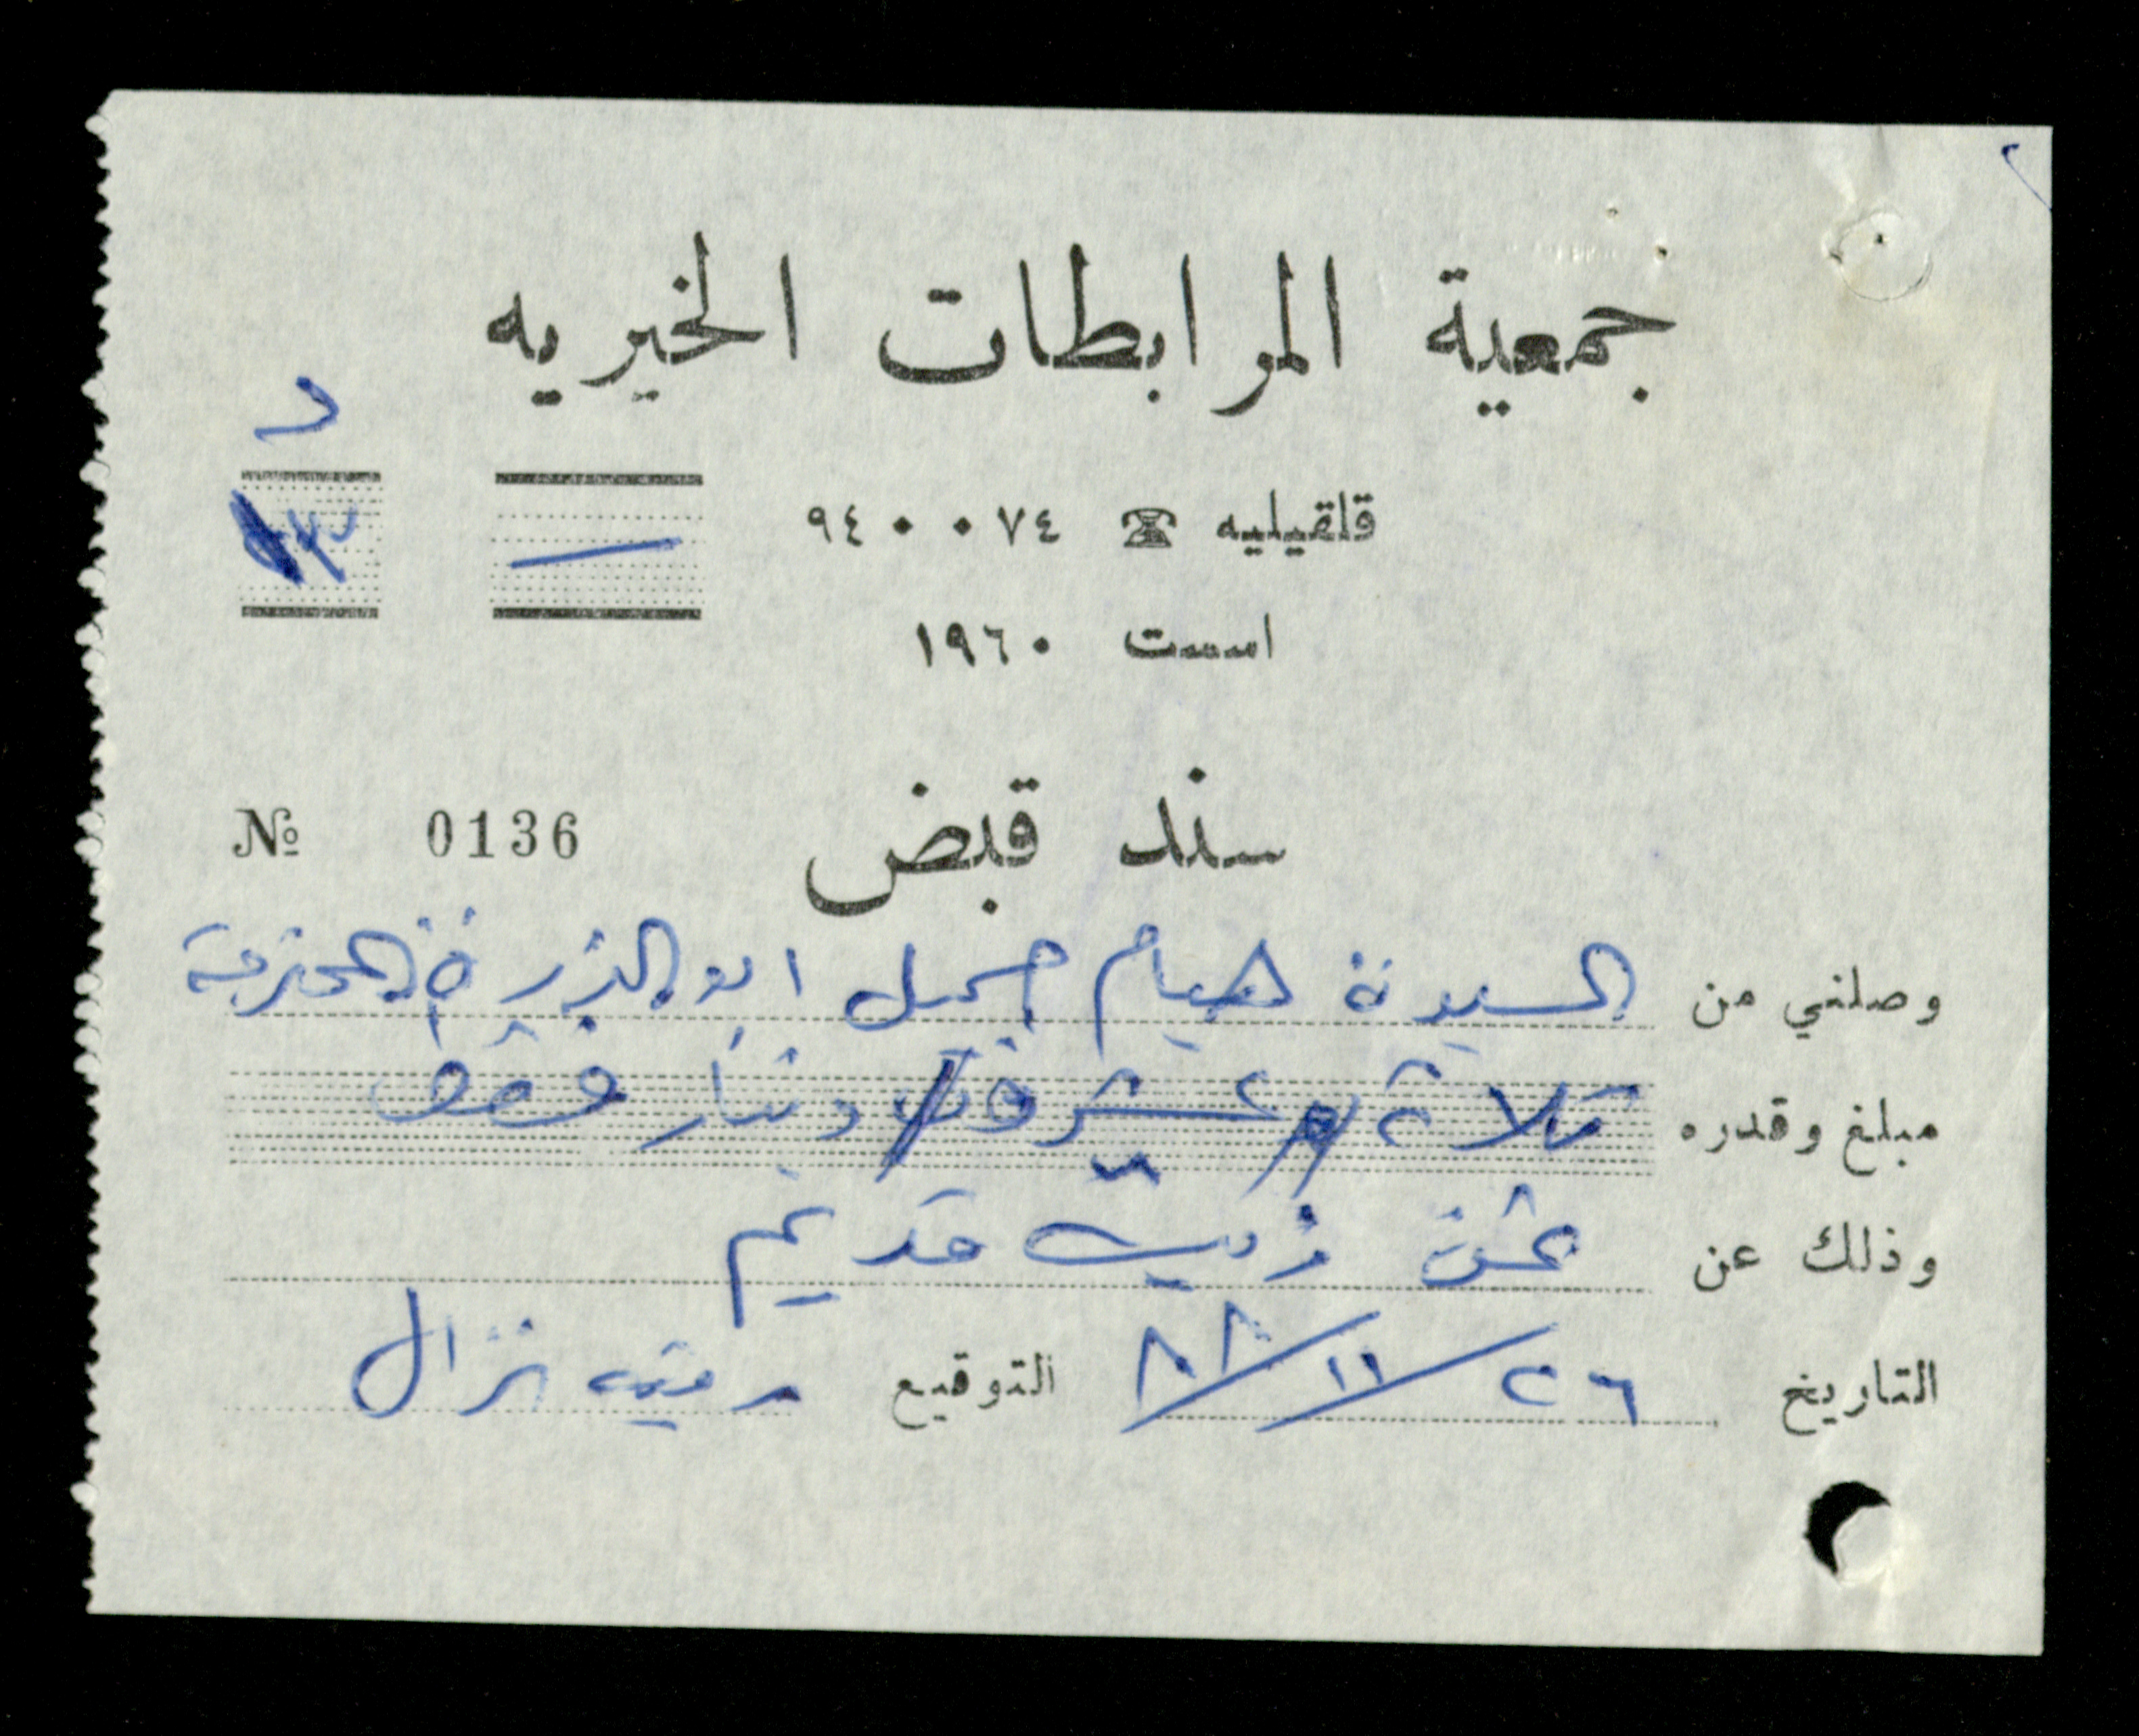 جمعية المرابطات الخيريه
د
قلقيليه ☎ ٩٤٠٠٧٤
اسست ١٩٦٠
سند قبض № 0136
وصلني من السيدة هيام جميل ابو الزر المحترمة
مبلغ وقدره ثلاثة عشر دينار فقط
وذلك عن ثمن زيت قديم
التاريخ ٢٦/١١/٨٨ التوقيع رقيه نزال